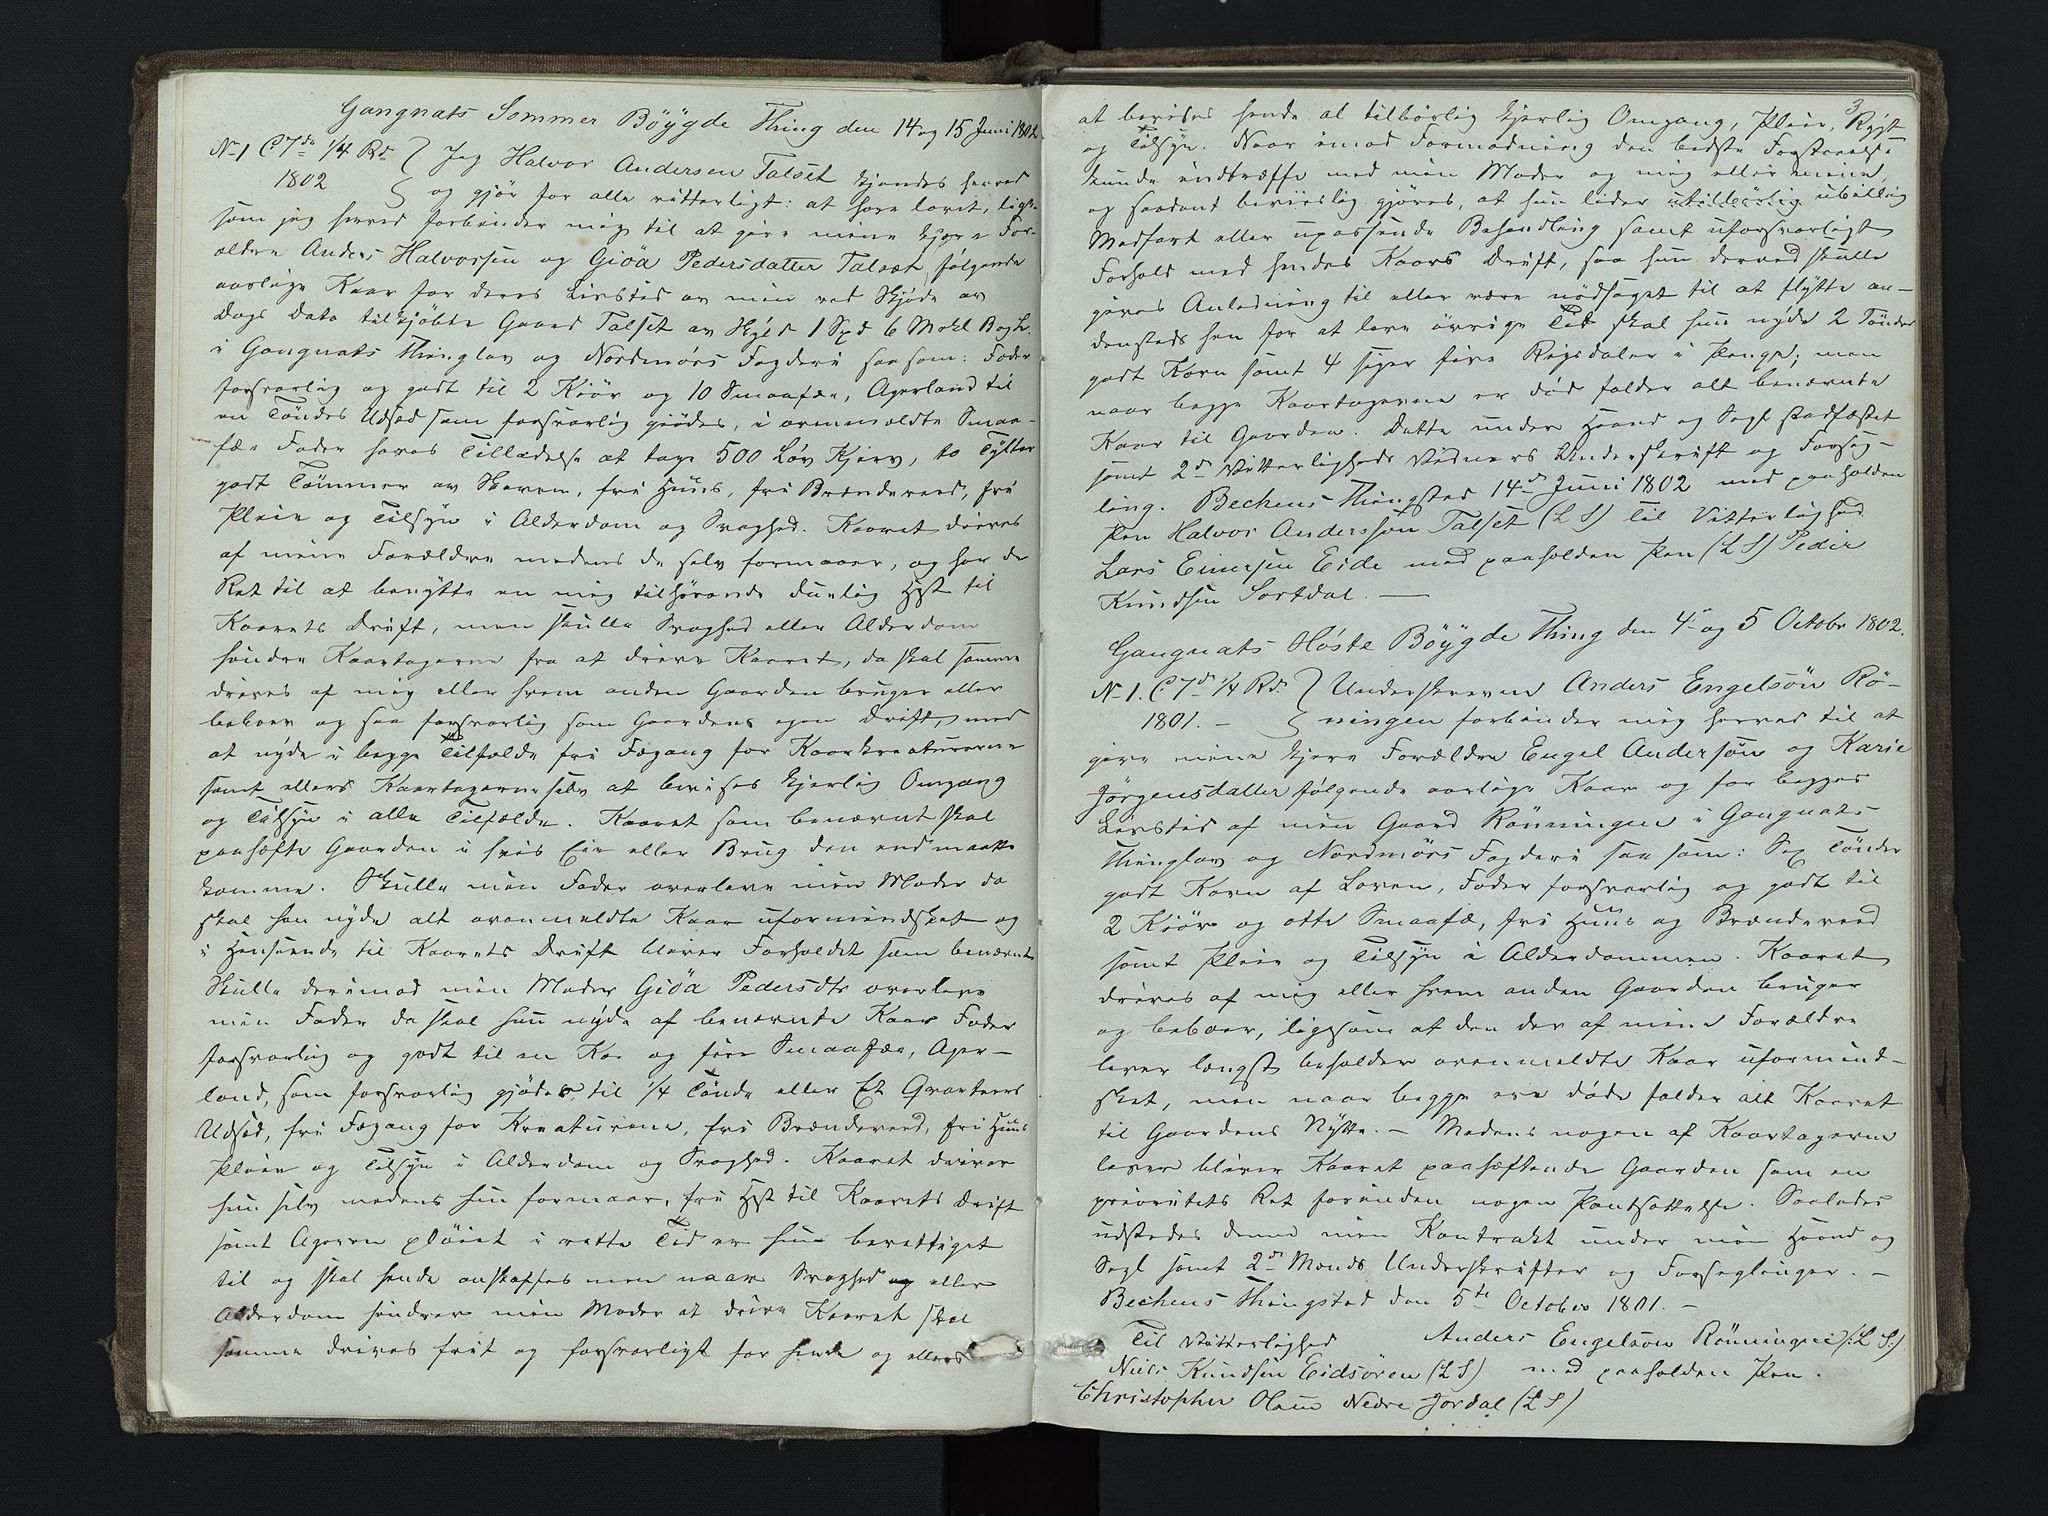 Gangnats Sommer Böÿgde Thing den 14 og 15 Juni 1802
No 1 C. 7de 1/4 Rd. } Jeg Halvor Andersen Talset kjendes herved
1802 og gjör for alle vitterligt: at have lovet, lige-
som jeg herved forbinder mig til at give mine kjere For-
ældre Anders Halvorsen og Giöa Pedersdatter Talset, følgende
aarlige Kaar for deres Livstid av min ved Skjöde av
Dags Dato tilkjøbte Gaard Talset av Skyld 1 Spd 6 Mrkl Boghl.
i Gangnats Thinglav og Nordmørs Fogderi saasom: Foder
forsvarlig og godt til 2 Kiör og 10 Smaafæe, Agerland til
en Töndes Udsæd som forsvarlig giödes, i ovenmeldte Smaa-
fæe Foder haves Tilladelse at tage 500 Löv Kjerv, to Tylter
godt Tömmer av Skoven, fri Huus, fri Brændeveed, fri
Pleie og Tilsyn i Alderdom og Svaghed. Kaaret drives
af mine Forældre medens de selv formaaer, og har de
Ret til at benytte en mig tilhørende duelig Hest til
Kaarets Drift, men skulle Svaghed eller Alderdom
hindre Kaartagerne fra at drive Kaaret, da skal samme
drives af mig eller hvem anden Gaarden bruger eller
beboer og saa forsvarlig som Gaardens egen Drift, med
at nyde i begge Tilfælde fri Fægang for Kaarkreaturerne
samt ellers Kaartagerne selv at bevises kjerlig Omgang
og Tilsyn i alle Tilfælde. Kaaret som benævnt skal
paahæfte Gaarden i hvis Eie eller Brug den end maatte
komme. Skulle min Fader overleve min Moder da
skal han nyde alt ovenmeldte Kaar uformindsket og
i Henseende til Kaarets Drift bliver Forholdet som benævnt
Skulle derimod min Moder Giöa Pedersdtr overleve
min Fader da skal hun nyde af benævnte Kaar Foder
forsvarlig og godt til en Koe og fire Smaafæe, Ager-
land, som forsvarlig gjödes til 1/4 Tönde eller Et Qvarteers
Udsæd, fri Fægang for Kreaturene, fri Brændeveed, fri Huus
Pleie og Tilsyn i Alderdom og Svaghed. Kaaret driver
hun selv medens hun formaar, fri Hest til Kaarets Drift
samt Ageren plöiet i rette Tid er hun berettiget
til og skal hende anskaffes men naar Svaghed og eller
Alderdom hindrer min Moder at drive Kaaret skal
samme drives frit og forsvarligt for hende og ellers
3
at bevises hende al tilbörlig kjerlig Omgang, Pleie, Rygt
og Tilsyn. Naar imod Formodning den bedste Forstaaelse
kunde indtræffe med min Moder og mig eller mine
og saadant bevislig gjöres, at hun lider utilbörlig ubillig
Medfart eller upassende Behandling samt uforsvarligt
Forhold med hendes Kaars Drift, saa hun derved skulle
gives Anledning til eller være nödsaget til at flytte an-
densteds hen for at leve övrige Tid skal hun nyde 2 Tönder
godt Korn samt 4 siger fire Rigsdaler i Penge; men
naar begge Kaartagerne er död falder alt benævnte
Kaar til Gaarden. Dette under Haand og Segl stadfæstet
samt 2de Vitterligheds Vidners Underskrift og Forseg-
ling. Bechens Thingsted 14de Juni 1802 med paaholden
Pen Halvor Anderssøn Talset (L S) Til Vitterlighed
Lars Einersen Eide med paaholden Pen (L S) Peder
Knudsen Sortdal. —
Gangnats Høste Böÿgde Thing den 4de og 5 Octobr 1802.
No 1. C. 7de 1/4 Rd. } Underskrevne Anders Engelsön Rö-
1801. — ningen forbinder mig herved til at
give mine kjere Forældre Engel Andersøn og Karie
Jørgensdatter følgende aarlige Kaar og for begges
Livstid af min Gaard Rönningen i Gangnats
Thinglav og Nordmørs Fogderi saa som: Sex Tönder
godt Korn af Loven, Foder forsvarlig og godt til
2 Kiör og otte Smaafæ, fri Huus og Brændeveed
samt Pleie og Tilsyn i Alderdommen. Kaaret
drives af mig eller hvem anden Gaarden bruger
og beboer, ligesom at den der af mine Forældre
lever længst beholder ovenmeldte Kaar uformind-
sket, men naar begge ere døde falder alt Kaaret
til Gaardens Nytte. — Medens nogen af Kaartagerne
lever bliver Kaaret paahæftende Gaarden som en
prioritets Ret forinden nogen Pantsættelse. Saaledes
udstedes denne min Kontrakt under min Haand og
Segl samt 2de Mænds Underskrifter og Forseglinger. —
Bechens Thingsted den 5te October 1801. —
Til Vitterlighed Anders Engelsøn Rönningen (L S.)
Niels Knudsen Eidsören (L S) med paaholden Pen.
Christopher Olsen Nedre Jordal (L S)